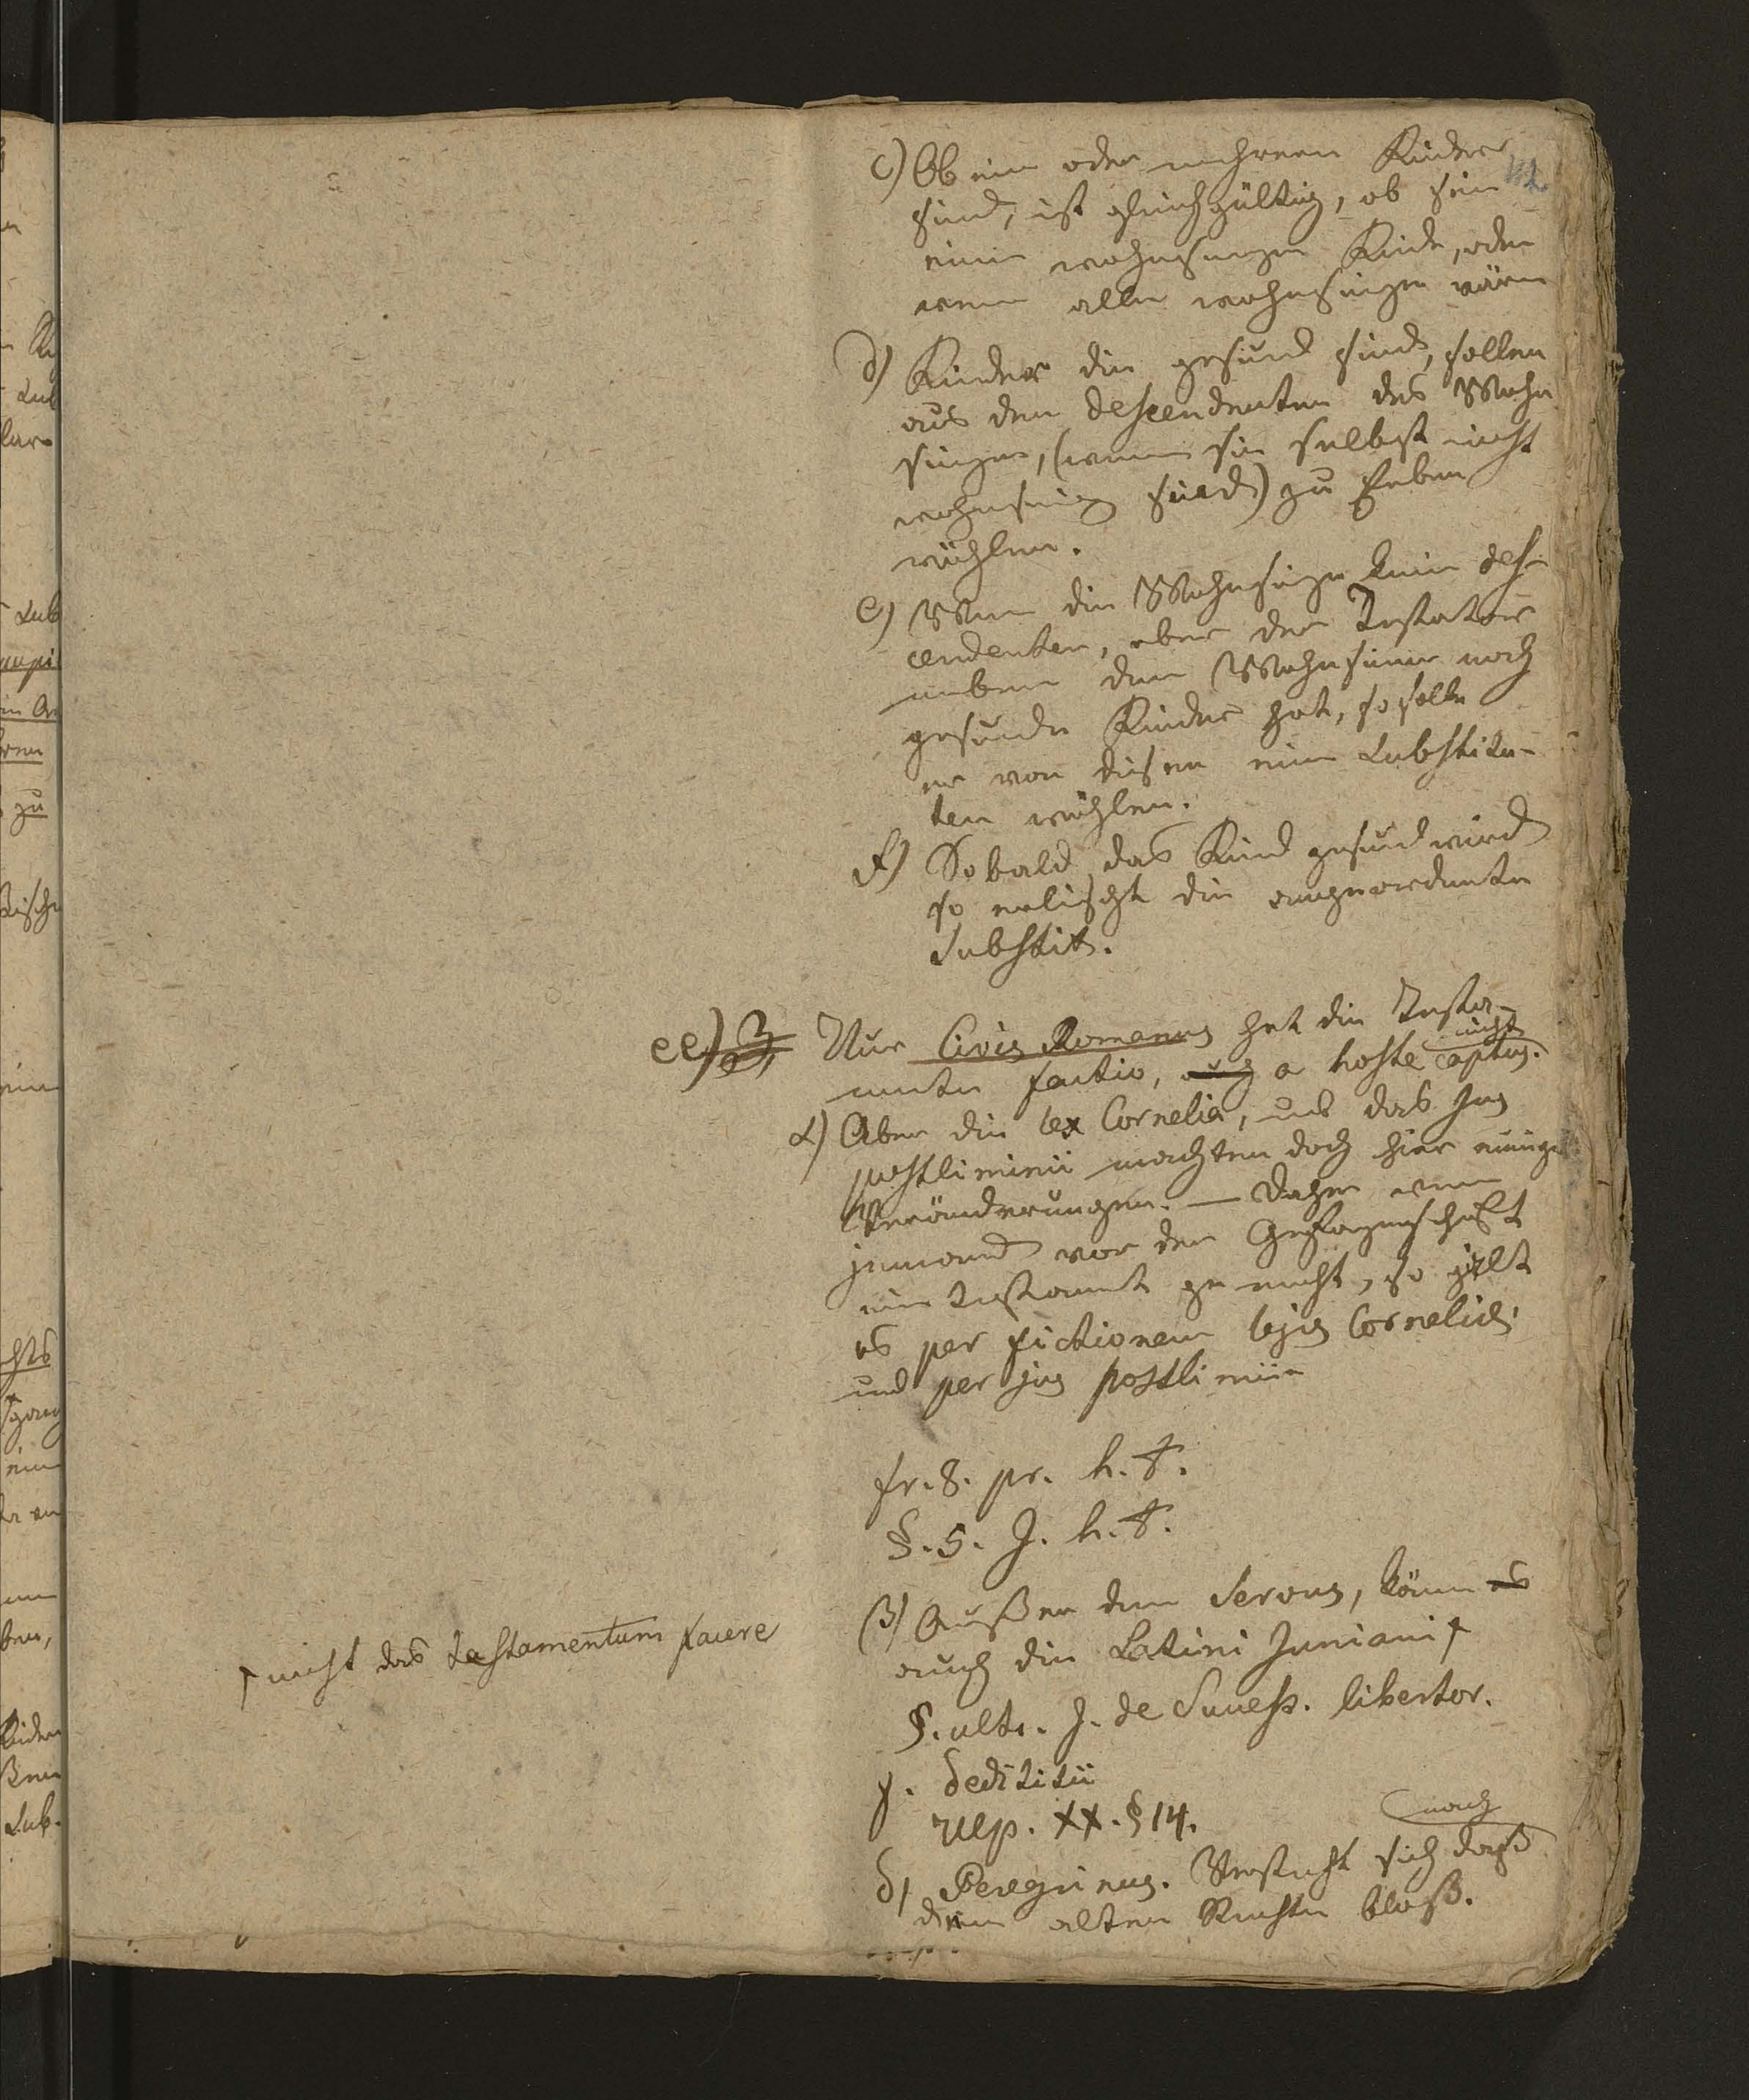 c) Ob ein oder mehrere Kinder
sind, ist gleichgültig, ob sein
eine wahnsinige Kinde, oder
wenn alle wahnsinige wären
d) Kinder die gesund sind, sollen
aus den descendenten des Wahn
sinigen, (wenn sie selbst nicht
wahnsinig sind) zu Erben
wählen.
e) Wenn die Wahnsinige keine des-
cendenten, aber der Testator
neben dem Wahnsinnigen noch
gesunde Kinder hat, so solle
er von diesen einen Substitu-
ten wählen.
f) Sobald das Kind gesund wird
so erlischt die angeordnete
Substit.
ee) 3, Nur Civis Romanus hat die Testa-
nicht
menti factio, auch a hoste captus.
α) Aber die lex Cornelia, und das Jus
postliminii machten doch hier einige
Veränderungen. — Daher wenn
jemand vor der Gefangenschaft
ein Testament gemacht, so gilt
es per fictionem legis Corneliae,
und per jus postliminii
fr. 8. pr. h. t.
§. 5. J. h. t.
β) Außer dem Servus, können es
auch die Latini Juniani †
† nicht das testamentum facere
§. ult. J. de Success. libertor.
γ. dedititii
Ulp. XX. § 14.
nach
δ, Peregrinus. Versteht sich daß
dem alten Rechte bloß.